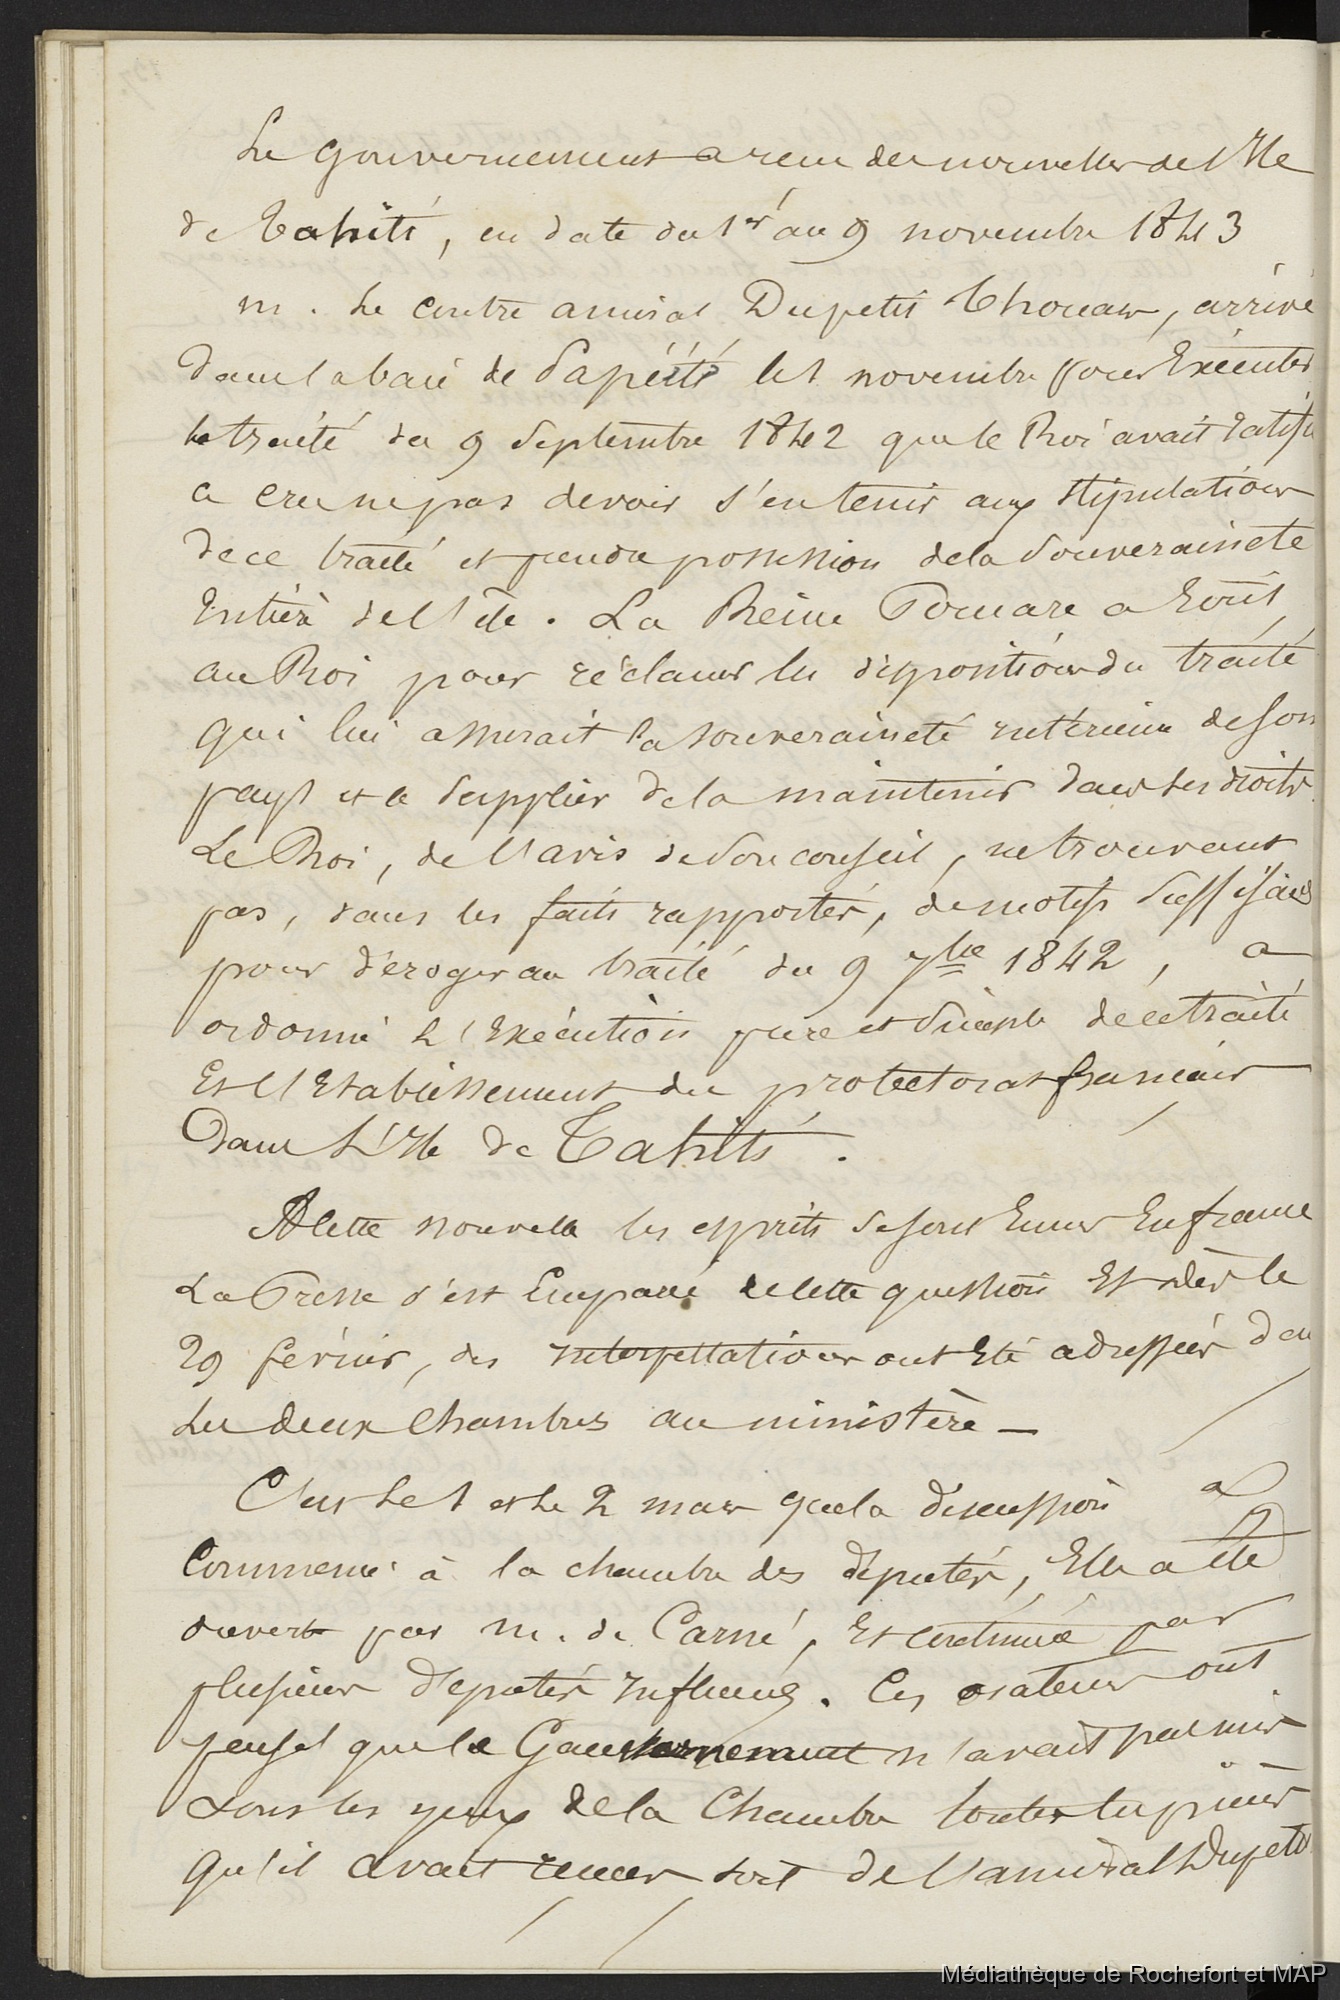 Le gouvernement a reçu des nouvelles de l'Ile
de Tahiti, en date du 1er au 9 novembre 1843
M. le contre amiral Dupetit Thouars, arrivé
dans la baie de Papéété le 1 novembre pour Exécuter
le traité du 9 Septembre 1842 que le Roi avait ratifié
a cru ne pas devoir s'en tenir aux stipulations
de ce traité et prendre possession de la Souveraineté
Entière de l'ile. La Reine Pomare a Ecrit
au Roi pour réclamer les dispositions du traité
qui lui assurait la souveraineté intérieure de son
pays et le supplier de la maintenir dans ses droits.
Le Roi, de l'avis de son conseil, ne trouvant
pas, dans les faits rapportés, de motifs suffisans
pour déroger au traité du 9 7bre 1842, a
ordonné l'exécution pure et simple de ce traité
Et l'Etablissement du protectorat français
Dans l'Ile de Tahiti.
A cette nouvelle les esprits se sont Emus En france
La Presse s'est Emparé de cette question Et dès le
29 février, des interpellations ont Eté adressées dans
les deux Chambres au ministère —
C'est le 1 et le 2 mars que la discussion a
Commencé à la chambre des députés, Elle a été
ouvert par M. de Carné, Et continuée par
plusieurs députés influens. Ces orateurs ont
pensé que le Gouvernement n'avait pas mis
sous les yeux de la Chambre toutes les pièces
qu'il avait reçues soit de l'amiral Dupetit
Médiathèque de Rochefort et MAP